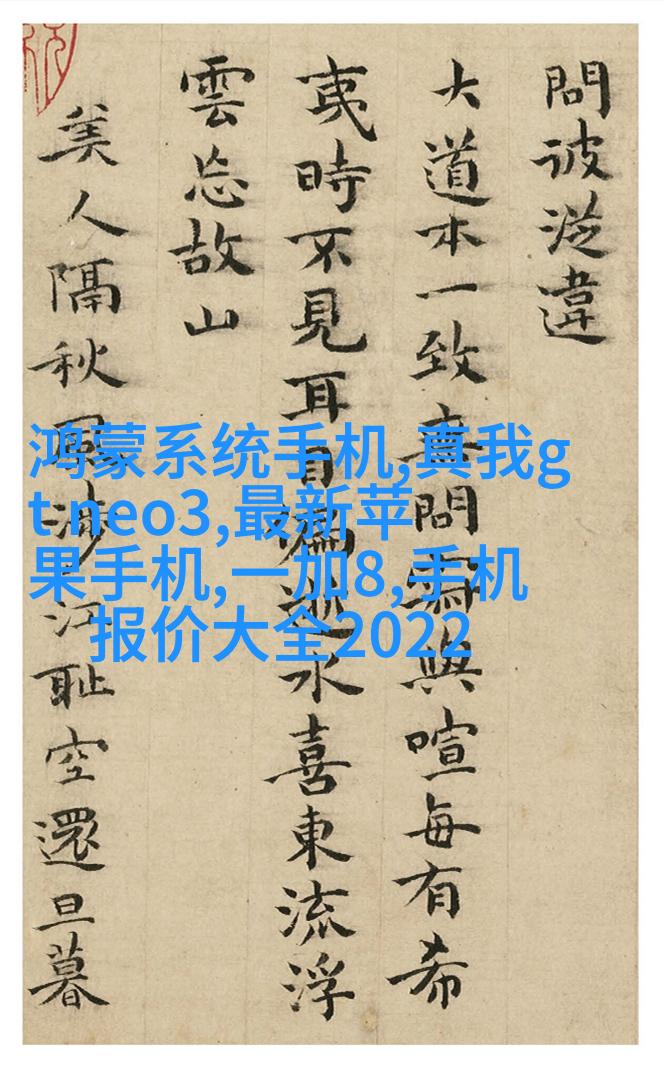 問彼從違
大道本一致問與喧每有希
夷時不見耳目偏逝水喜東流浮
雲忘故山
美人隔秋風涉江耻空還旦暮
鸿蒙系统手机,真我g
t neo3,最新苹
果手机,一加8,手机
报价大全2022